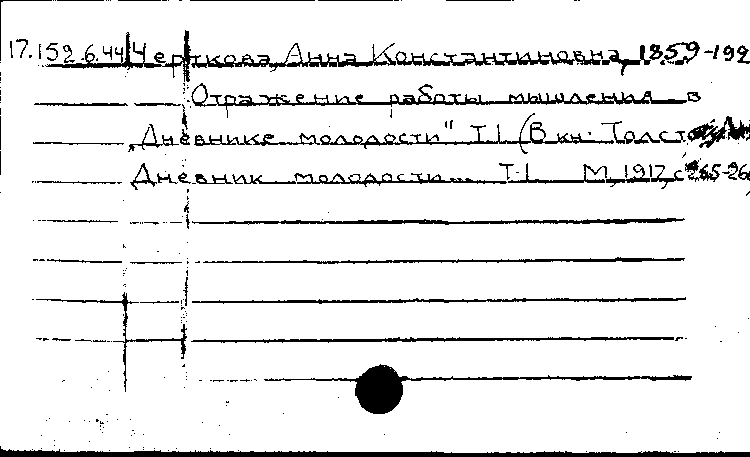 17.152.6.44 Черткова, Анна Константиновна, 1859-192
Отражение работы мышления в
„Дневнике молодости" Т.I. (В кн. Толст
Дневник молодости... Т.I. М, 1917, с 265-26